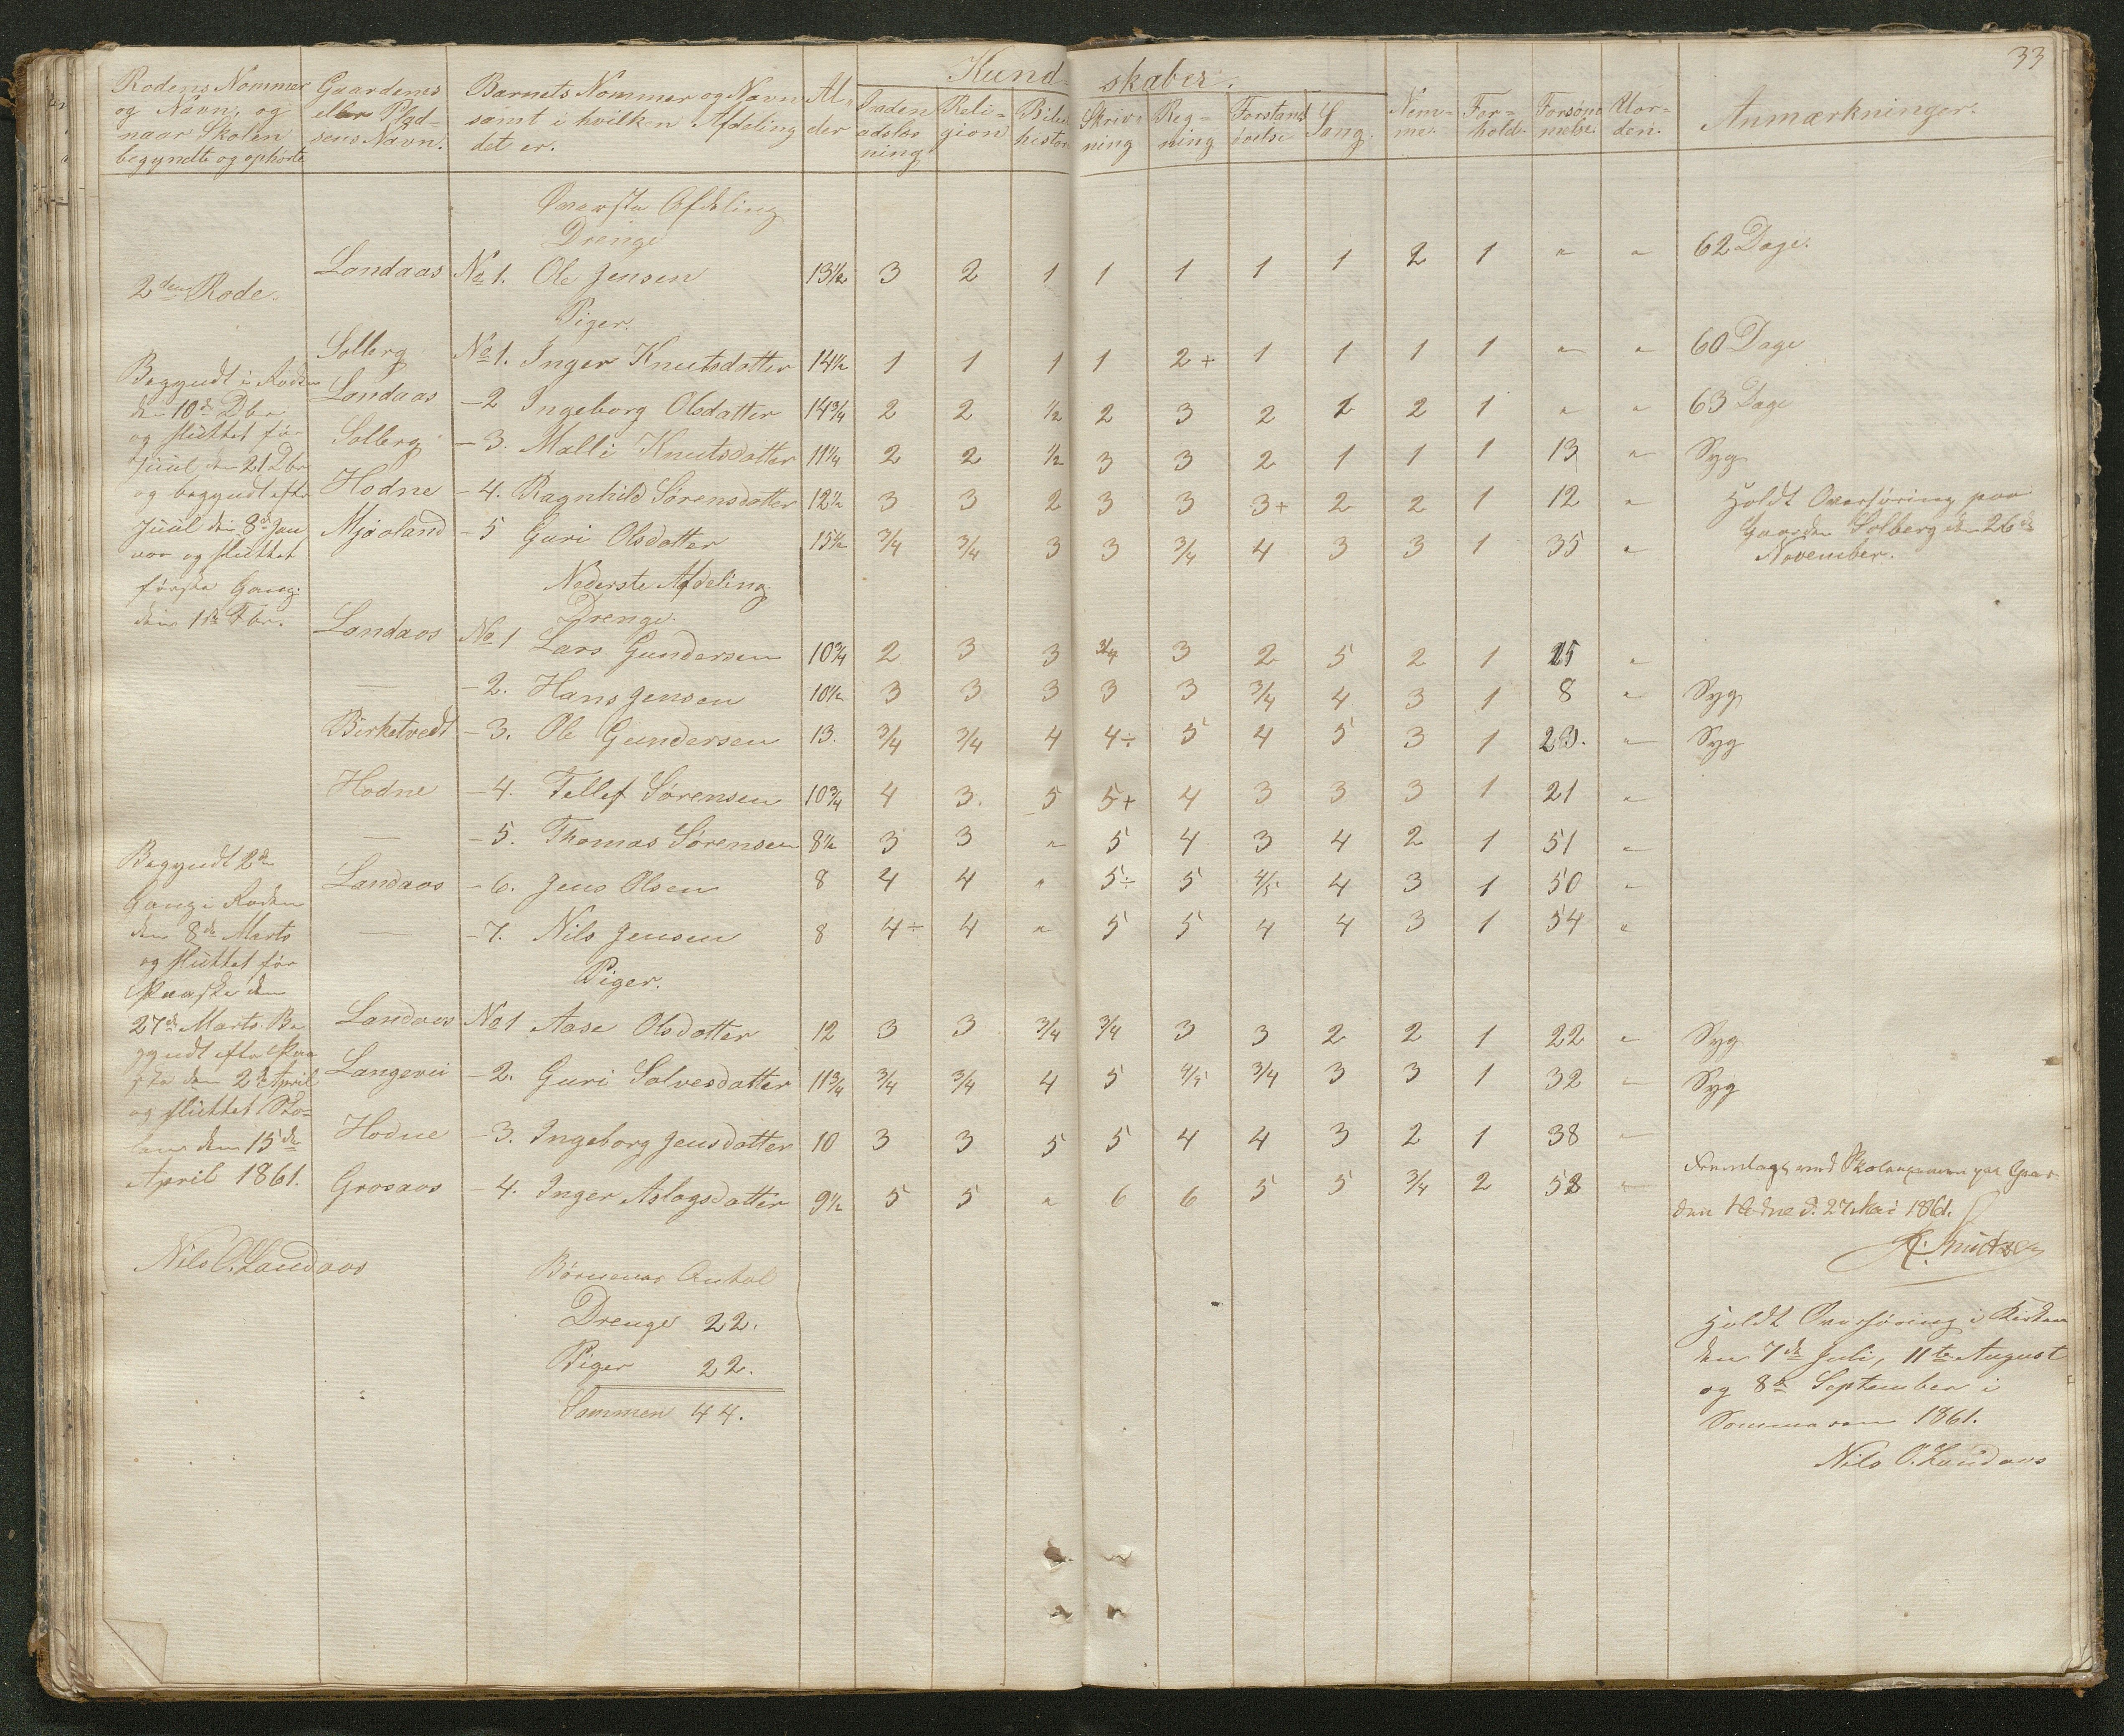 33
Kund- skaber.
Rodens Nommer og Navn, og naar Skolen begyndte og ophørte
Gaardenes eller Plad- sens Navn.
Barnets Nommer og Navn samt i hvilken Afdeling det er.
Al- der
Inden adslæs ning
Reli- gion
Bibel histor
Skriv- ning
Reg- ning
Forstands øvelse
Sang.
Nem- me.
For- hold.
Forsøm melse.
Uor- den.
Anmærkninger.
Øverste Afdeling
Drenge
Landaas No 1. Ole Jensen 13½ 3 2 1 1 1 1 1 2 1 " " 62 Dage.
2den Rode.
Piger.
Solberg No 1. Inger Knutsdatter 14½ 1 1 1 1 2+ 1 1 1 1 " " 60 Dage
Landaas -2 Ingeborg Olsdatter 14¾ 2 2 ½ 2 3 2 2 2 1 " " 63 Dage
Solberg -3. Malli Knutsdatter 11¼ 2 2 ½ 3 3 2 1 1 1 13 " Syg
Hodne -4. Ragnhild Sørensdatter 12½ 3 3 2 3 3 3+ 2 2 1 12 "
Mjaaland -5 Guri Olsdatter 15½ 3/4 3/4 3 3 3/4 4 3 3 1 35 "
Holdt Overhøring paa
Gaarden Solberg den 26de
November.
Begyndt i Roden
den 10de Dbr
og sluttet før
Juul den 21 Dbr
og begyndt efter
Juul den 8de Jan
uar og sluttet
første Gang
den 1ste Fbr.
Nederste Afdeling
Drenge.
Landaas No 1 Lars Gundersen 10¾ 2 3 3 3/4 3 2 5 2 1 25 "
— -2. Hans Jensen 10½ 3 3 3 3 3 3/4 4 3 1 8 " Syg
Birketvedt -3. Ole Gundersen 13. 3/4 3/4 4 4÷ 5 4 5 3 1 23. " Syg
Hodne -4. Tellef Sørensen 10¾ 4 3. 5 5+ 4 3 3 3 1 21 "
— -5. Thomas Sørensen 8½ 3 3 " 5 4 3 4 2 1 51 "
Landaas -6. Jens Olsen 8 4 4 " 5÷ 5 4/5 4 3 1 50 "
— -7. Nils Jensen 8 4÷ 4 " 5 5 4 4 3 1 54 "
Piger.
Landaas No 1 Aase Olsdatter 12 3 3 3/4 3/4 3 3 2 2 1 22 " Syg
Langevei -2. Guri Solvesdatter 11¾ 3/4 3/4 4 5 4/5 3/4 3 3 1 32 " Syg
Hodne -3. Ingeborg Jensdatter 10 3 3 5 5 4 4 3 2 1 38 "
Grosaas -4. Inger Aslagsdatter 9½ 5 5 " 6 6 5 5 3/4 2 52 "
Begyndt 2den
Gang i Roden
den 8de Marts
og sluttet før
Paaske den
27de Marts. Be
gyndt efter Paa
ske den 2de April
og sluttet Sko-
len den 15de
April 1861.
Nils O. Landaas
Fremlagt ved Skoleexamen paa Gaar-
den Hodne d. 27 Mai 1861.
Børnenes Antal
Drenge 22.
Piger 22.
Sammen 44.
Holdt Overhøring i Kirken
den 7de Juli, 11te August
og 8de September i
Sommeren 1861.
Nils O. Landaas